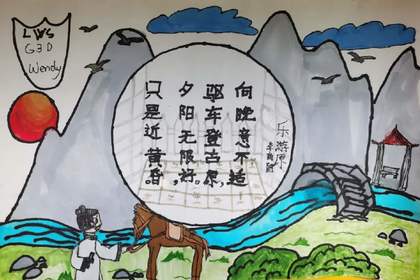 LWS
G3D
Wendy
乐游原
李商隐
向晚意不适
驱车登古原,
夕阳无限好,
只是近黄昏。